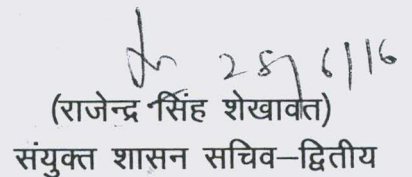 28/6/16
(राजेन्द्र सिंह शेखावत)
संयुक्त शासन सचिव–द्वितीय